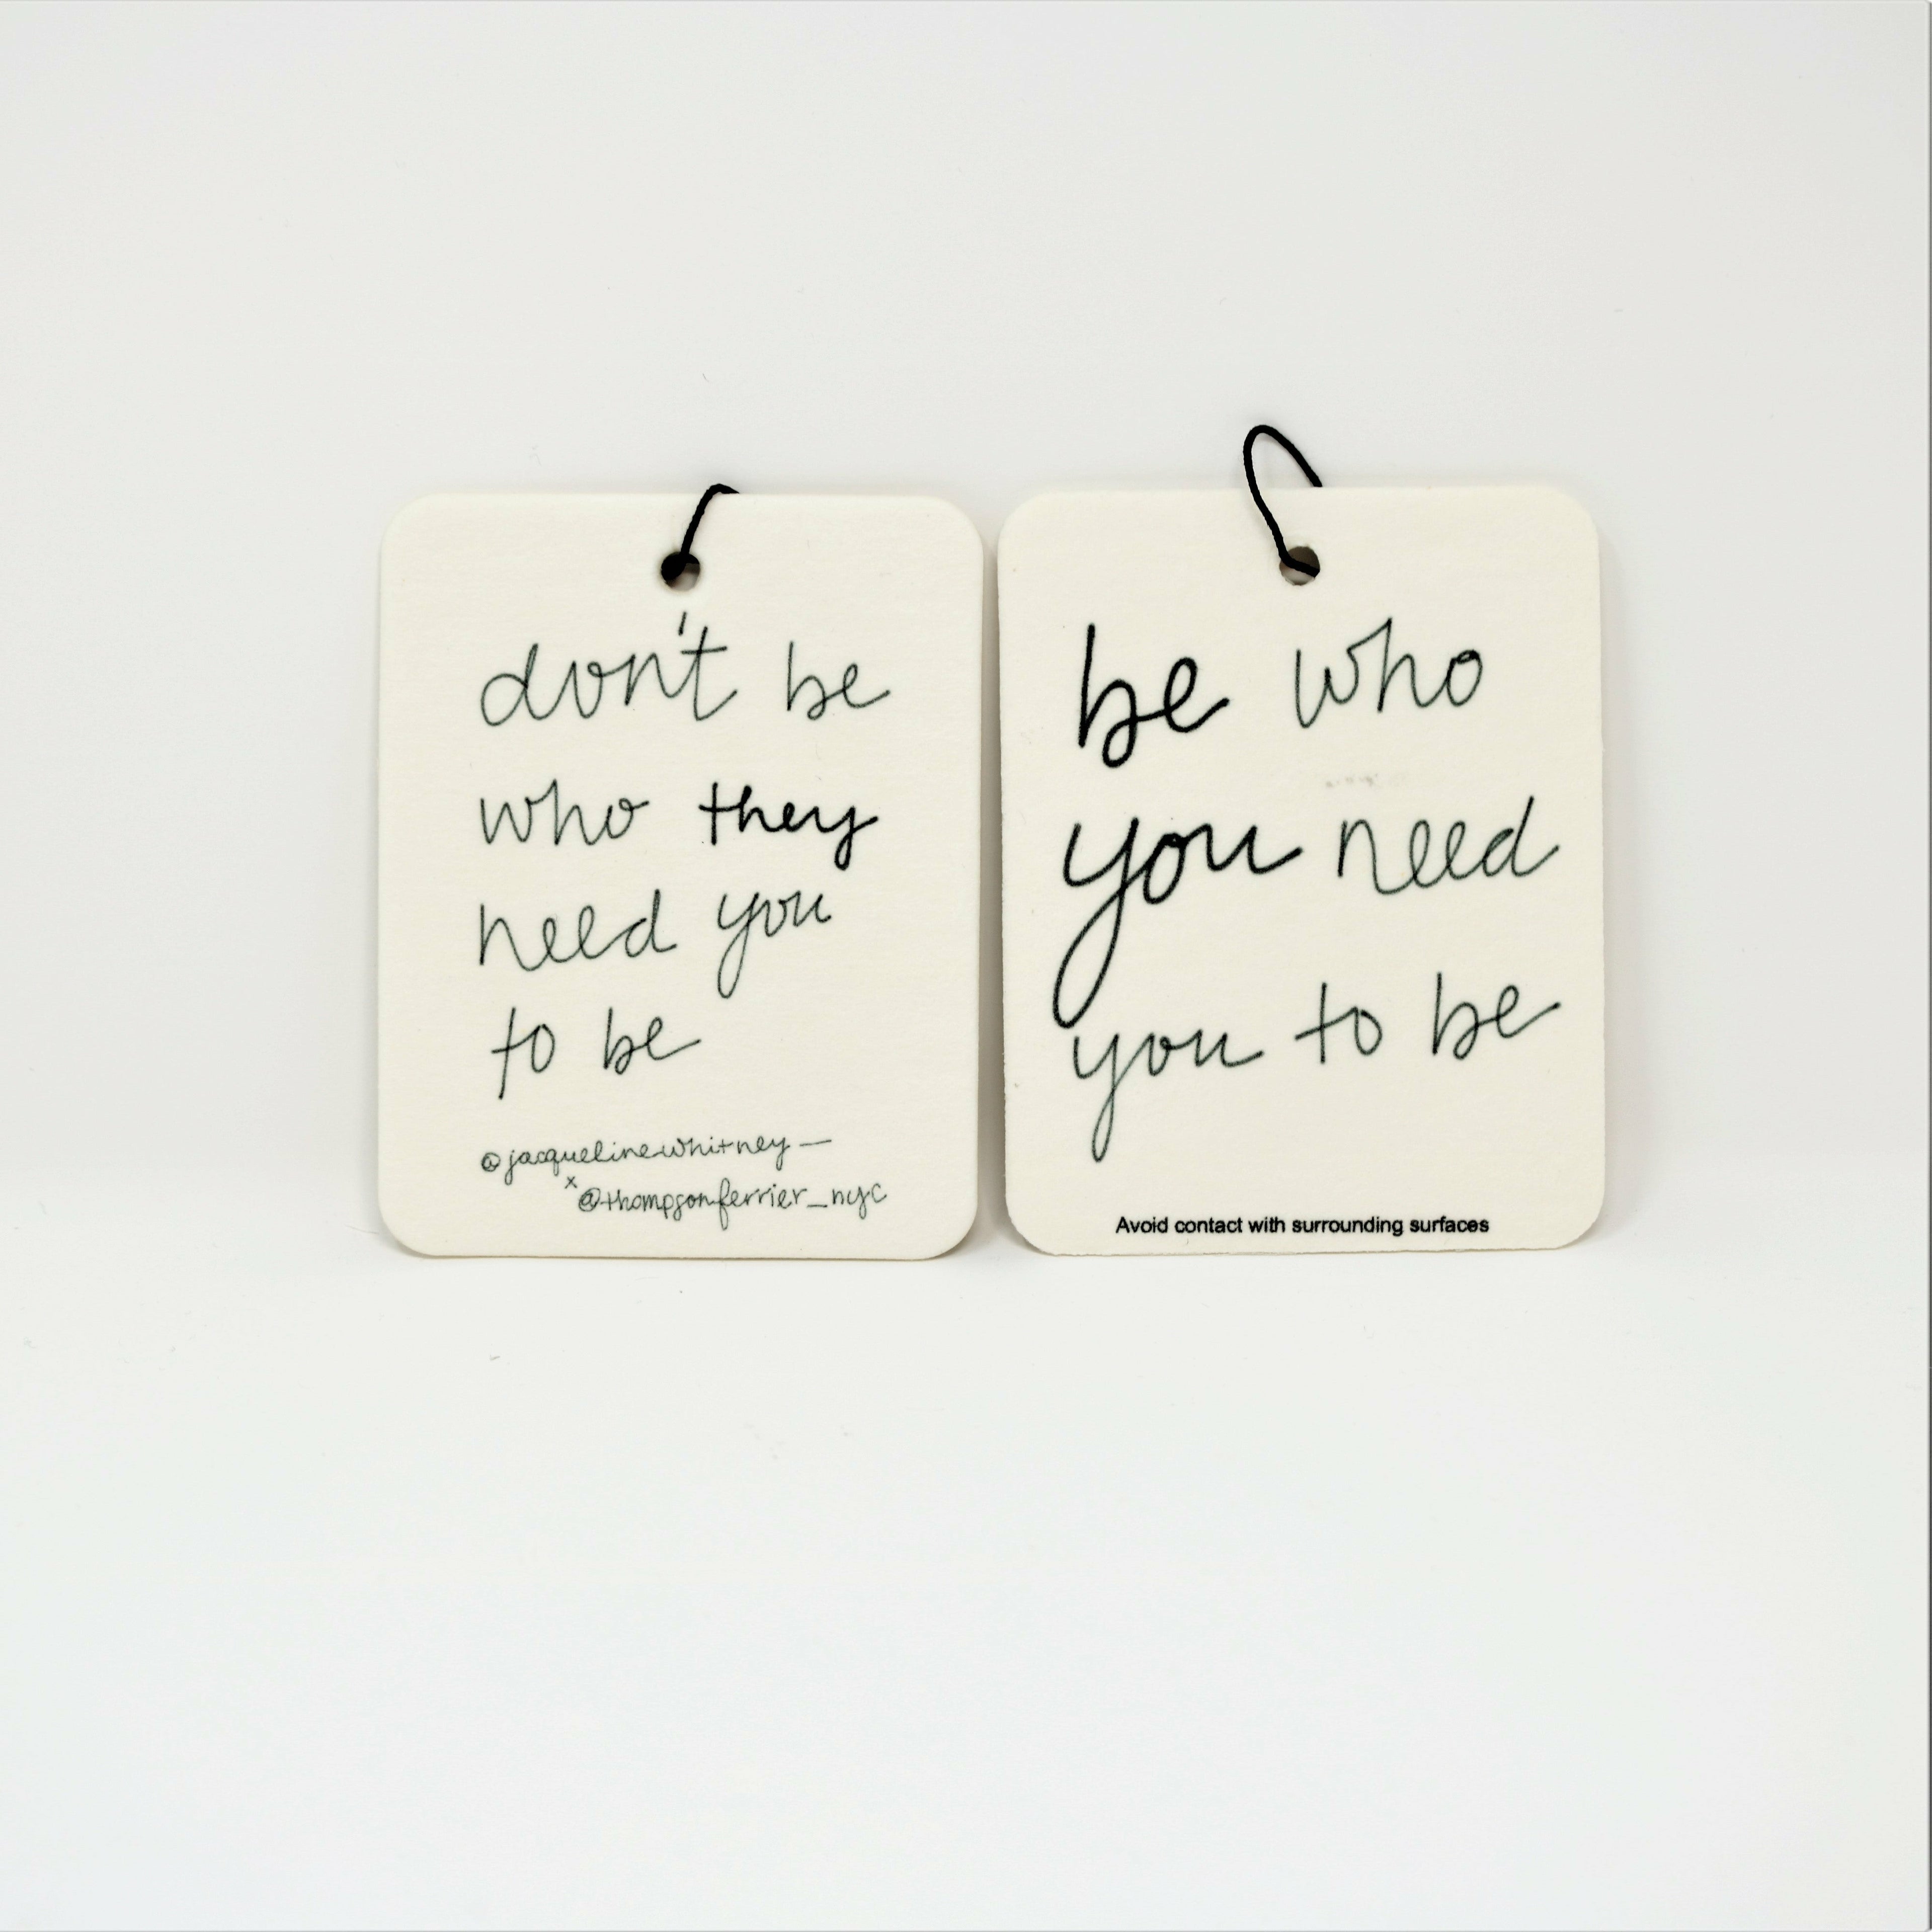 don't be
who they
need you
to be
@jacquelinewhitney_
x
@thompsonferrier_nyc
be who
you need
you to be
Avoid contact with surrounding surfaces